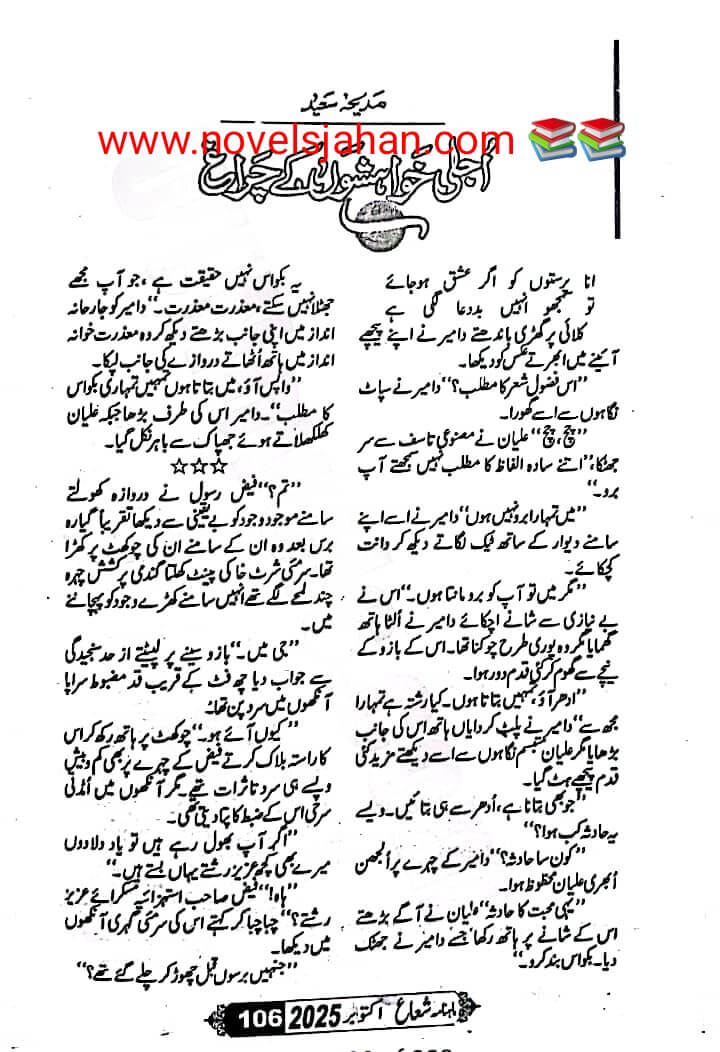 مدیحہ سعید
www.novelsjahan.com
اُجلی خواہشوں کے چراغ
انا پرستوں کو اگر عشق ہو جائے
تو سمجھو انہیں بددعا لگی ہے
کلائی پر گھڑی باندھتے دامیر نے اپنے پیچھے
آئینے میں ابھرتے عکس کو دیکھا۔
”اس فضول شعر کا مطلب؟“ دامیر نے سپاٹ
نگاہوں سے اسے گھورا۔
”چچ، چچ“ علیان نے مصنوعی تاسف سے سر
جھٹکا، ”اتنے سادہ الفاظ کا مطلب نہیں سمجھتے آپ
برو۔“
”میں تمہارا برو نہیں ہوں“ دامیر نے اسے اپنے
سامنے دیوار کے ساتھ ٹیک لگاتے دیکھ کر دانت
کچکچائے۔
”مگر میں تو آپ کو برو مانتا ہوں۔“ اس نے
بے نیازی سے شانے اچکائے دامیر نے الٹا ہاتھ
گھمایا مگر وہ پوری طرح چوکنا تھا۔ اس کے بازو کے
نیچے سے گھوم کر کئی قدم دور ہوا۔
”ادھر آؤ، تمہیں بتاتا ہوں۔ کیا رشتہ ہے تمہارا
مجھ سے“ دامیر نے پلٹ کر دایاں ہاتھ اس کی جانب
بڑھایا مگر علیان متبسم نگاہوں سے اسے دیکھتے مزید کئی
قدم پیچھے ہٹ گیا۔
”جو بھی بتانا ہے، اُدھر سے ہی بتائیں۔ ویسے
یہ حادثہ کب ہوا؟“
”کون سا حادثہ؟“ دامیر کے چہرے پر الجھن
ابھری علیان محظوظ ہوا۔
”یہی محبت کا حادثہ“ علیان نے آگے بڑھتے
اس کے شانے پر ہاتھ رکھا جسے دامیر نے جھٹک
دیا۔ بکواس بند کرو۔“
یہ بکواس نہیں حقیقت ہے، جو آپ مجھے
جھٹلا نہیں سکتے، معذرت معذرت۔“ دامیر کو جارحانہ
انداز میں اپنی جانب بڑھتے دیکھ کر وہ معذرت خوانہ
انداز میں ہاتھ اُٹھاتے دروازے کی جانب لپکا۔
”واپس آؤ، میں بتاتا ہوں تمہیں تمہاری بکواس
کا مطلب“۔ دامیر اس کی طرف بڑھا جبکہ علیان
کھلکھلاتے ہوئے جھپاک سے باہر نکل گیا۔
☆☆☆
”تم؟“ فیض رسول نے دروازہ کھولتے
سامنے موجود وجود کو بے یقینی سے دیکھا تقریباً گیارہ
برس بعد وہ ان کے سامنے ان کی چوکھٹ پر کھڑا
تھا۔ سرمئی شرٹ خاکی پینٹ کھلتا گندمی پرکشش چہرہ
چند لمحے لگے تھے انہیں سامنے کھڑے وجود کو پہچاننے
میں۔
”جی میں۔“ بازو سینے پر لپیٹتے از حد سنجیدگی
سے جواب دیا چھ فٹ کے قریب قد مضبوط سراپا
آنکھوں میں سرد پن تھا۔
”کیوں آئے ہو۔“ چوکھٹ پر ہاتھ رکھ کر اس
کا راستہ بلاک کرتے فیض کے چہرے پر بھی کم و بیش
ویسے ہی سرد تاثرات تھے۔ مگر آنکھوں میں اُمڈتی
سرخی اس کے ضبط کا پتا دیتی تھی۔
”اگر آپ بھول رہے ہیں تو یاد دلا دوں
میرے بھی کچھ عزیز رشتے یہاں بستے ہیں۔“
”ہاہا“ فیض صاحب استہزائیہ مسکرائے عزیز
رشتے؟“ چبا چبا کر کہتے اس کی سرمئی گہری آنکھوں
میں دیکھا۔
”جنہیں برسوں قبل چھوڑ کر چلے گئے تھے؟“
ماہنامہ شعاع اکتوبر 2025 106